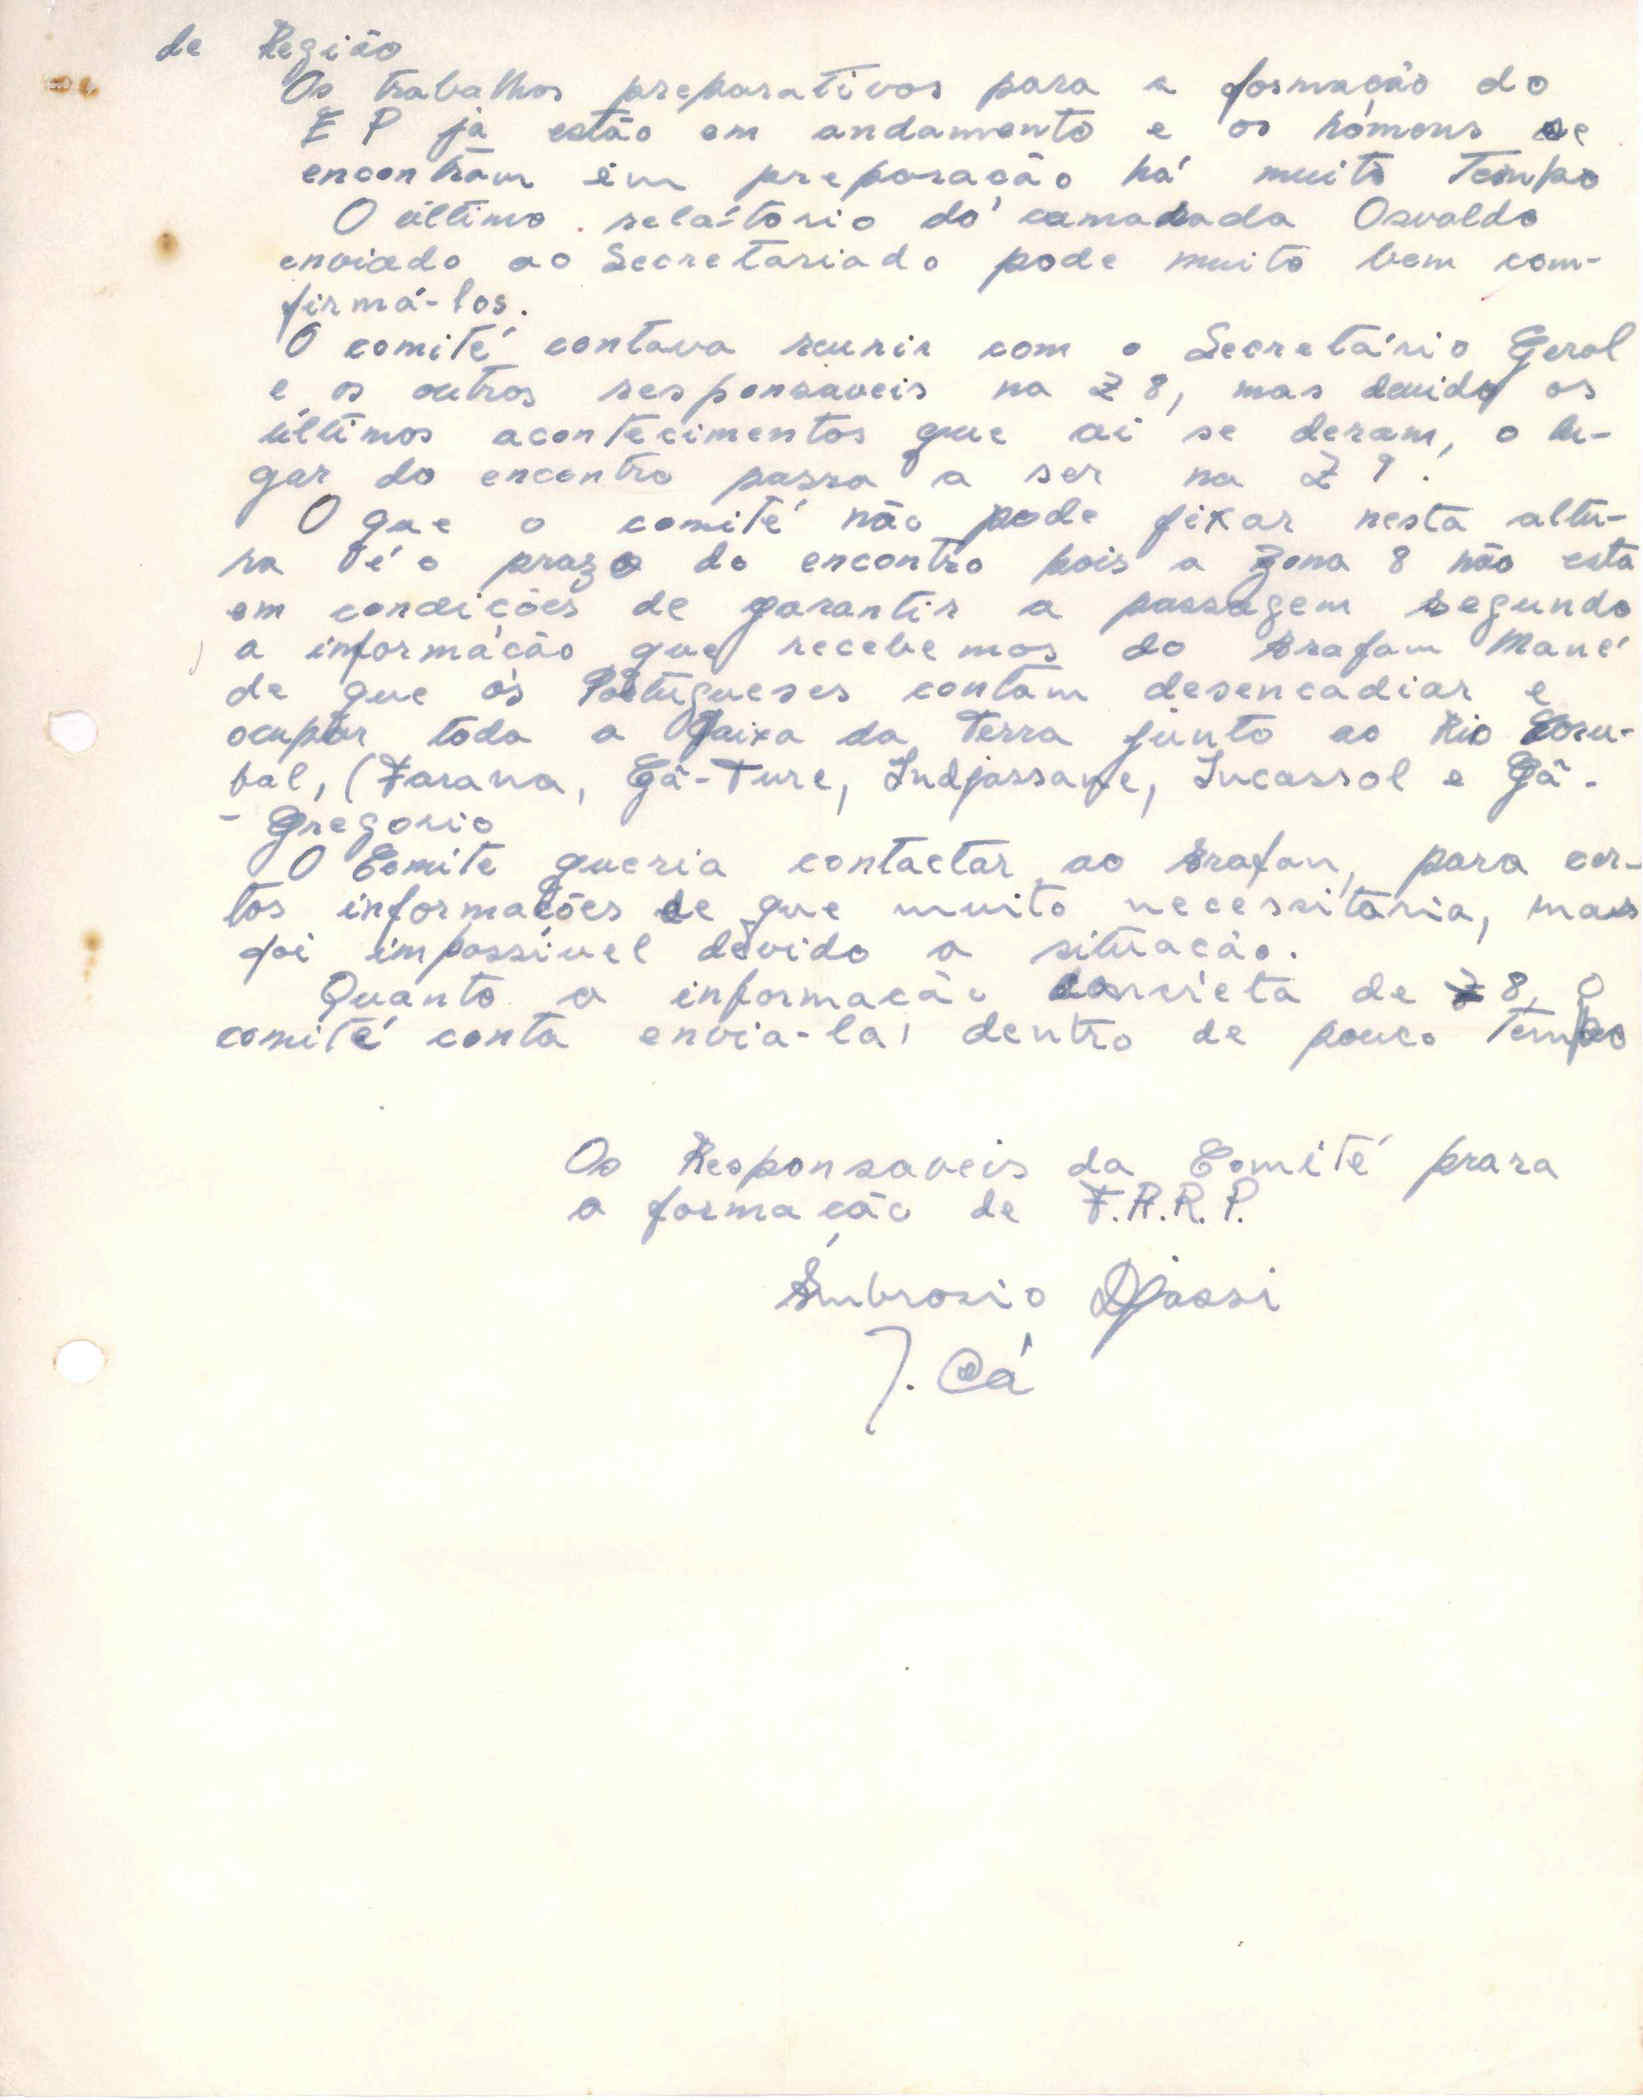 de Região
Os trabalhos preparativos para a formação do
E P já estão em andamento e os hómens se
encontram em preparação há muito Tempo
O último relatório do camarada Osvaldo
enviado ao Secretariado pode muito bem com-
firmá-los.
O comité contava reunir com o Secretário Geral
e os outros responsaveis na Z 8, mas devido os
últimos acontecimentos que aí se deram, o lu-
gar do encontro passa a ser na Z 9.
O que o comité não pode fixar nesta altu-
ra é o prazo do encontro pois a Zona 8 não esta
em condições de garantir a passagem segundo
a informação que recebemos do Arafam Mané
de que os Portugueses contam desencadiar e
ocupar toda a Faixa da Terra junto ao Rio Coru-
bal, (Farana, Gã-Ture, Indjassane, Incassol e Gã-
- Gregorio
O Comite queria contactar ao Arafan, para cer-
tas informações de que muito necessitaria, mas
foi impossível devido a situação.
Quanto a informação concreta de Z 8, O
comité conta envia-la, dentro de pouco Tempo
Os Responsaveis da Comité prara
a formação de F.A.R.P.
Ambrosio Djassi
J. Cá